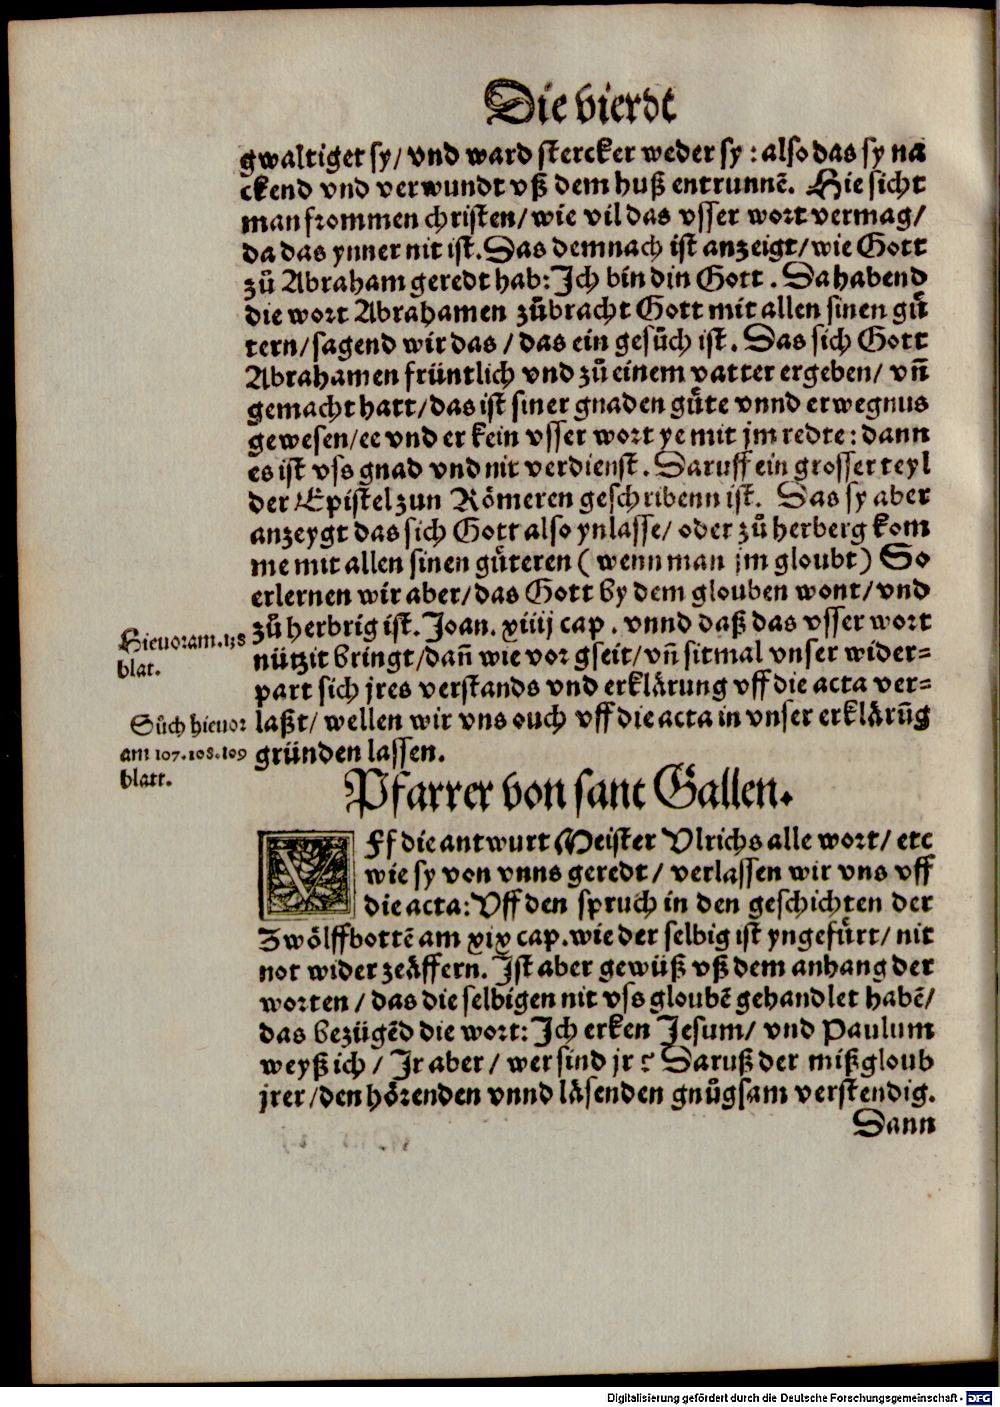 Die vierdt
gwaltiget sy/ vnd ward stercker weder sy : also das sy na
ckend vnd verwundt vß dem huß entrunnē. Hie sicht
man frommen christen/ wie vil das vsser wort vermag/
da das ynner nit ist. Das demnach ist anzeigt/ wie Gott
zů Abraham geredt hab: Ich bin din Gott. Da habend
die wort Abrahamen zůbracht Gott mit allen sinen gů
tern/ sagend wir das / das ein gesůch ist. Das sich Gott
Abrahamen früntlich vnd zů einem vatter ergeben/ vñ
gemacht hatt/ das ist siner gnaden gůte vnnd erwegnus
gewesen/ ee vnd er kein vsser wort ye mit jm redte: dann
es ist vss gnad vnd nit verdienst. Daruff ein grosser teyl
der Epistel zun Römeren geschribenn ist. Das sy aber
anzeygt das sich Gott also ynlasse/ oder zů herberg kom
me mit allen sinen gůteren ( wenn man jm gloubt) So
erlernen wir aber/ das Gott by dem glouben wont/ vnd
zů herbrig ist. Joan. xiiij cap. vnnd daß das vsser wort
nützit bringt/ dañ wie vor gseit/ vñ sitmal vnser wider=
part sich jres verstands vnd erklärung vff die acta ver=
laßt/ wellen wir vns ouch vff die acta in vnser erklärūg
gründen lassen.
Hieuor am. 138
blat.
Sůch hieuor
am 107. 108. 109
blatt.
Pfarrer von sant Gallen.
VFf die antwurt Meister Vlrichs alle wort/ etc
wie sy von vnns geredt/ verlassen wir vns vff
die acta: Vff den spruch in den geschichten der
Zwölffbottē am xix cap. wie der selbig ist yngefürt/ nit
not wider zeäffern. Ist aber gewüß vß dem anhang der
worten / das die selbigen nit vss gloubē gehandlet habē/
das bezügēd die wort: Ich erken Jesum/ vnd Paulum
weyß ich / Ir aber / wer sind jr ? Daruß der mißgloub
jrer/ den hörenden vnnd läsenden gnůgsam verstendig.
Dann
Digitalisierung gefördert durch die Deutsche Forschungsgemeinschaft - DFG